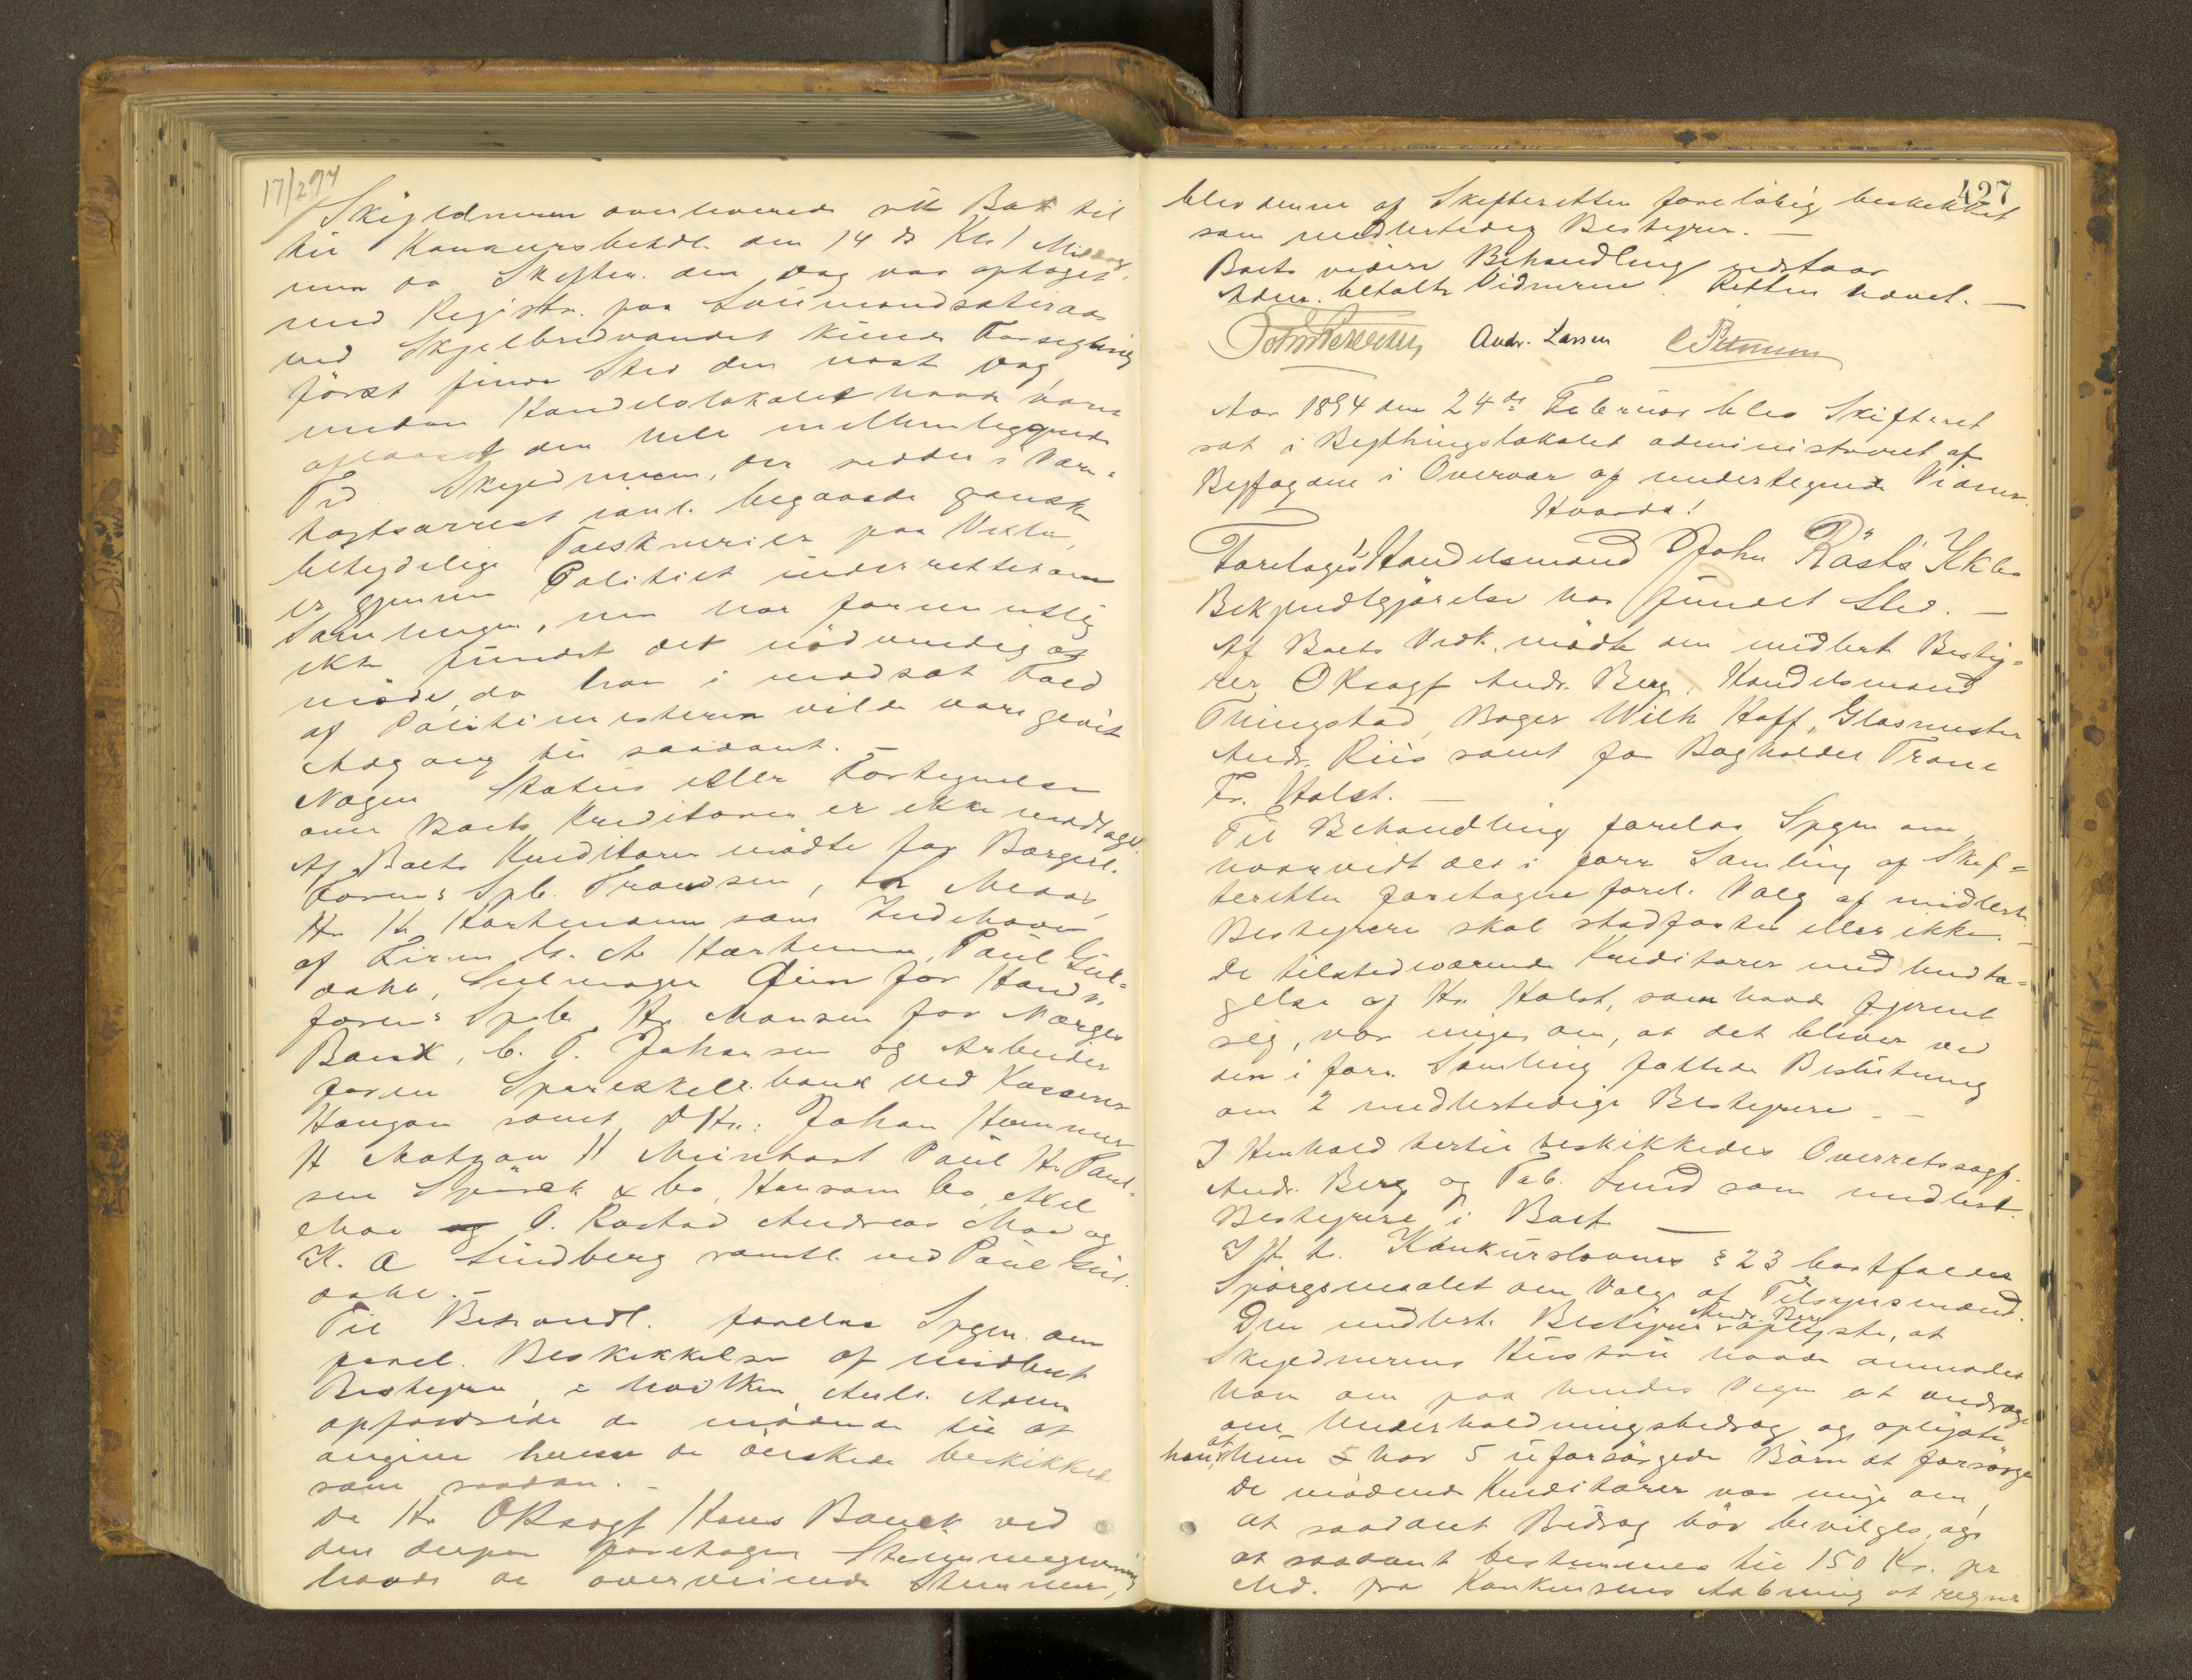 17/2 94
Skyldneren overleverede sit Bo til
til Konkursbehdl. den 14 ds Kl. 1 Middag,
men da Skiften. den Dag var optaget
med Registr. paa
ved Skjelbredvandet kunde Forsegling
först finde Sted den næst Dag,
medens Handelslokalet havde været
aflaaset den hele mellemliggende
Tid. Skyldneren, der sidder i Varæ-
tægtsarrest for begaaede ganske
betydelige Falsknerier paa Vexler,
er gjennem Politiet underrettet om
Samlingen, men har formentlig
ikke fundet det nödvendig at
möde, da han i modsat Fald
af Politimesteren vilde være givet
Adgang til saadant. –
Nogen Status eller Fortegnelse
over Boets Kreditorer er ikke modtaget.
Af Boets Kreditorer mödte for Borgerl.
Foren: Spb. Frandsen,
Hr H. Hartmann som Indehaver
af Firm C. A. Hartmann, Paul Gul-
dahl, for Handv.
foren: Spb. Hr. Monsen for Norges
Bank, C. T. Johansen og Arbeider
foren Spareskill.bank ved Kasserer
Haugan samt DHr: Johan Hammer
H Matzau H Meinhart Paul Hr. Paul-
sen Spörck & Co, Hansom Co, Axel
Moe og O. Rostad Andreas Moe og
K. A Lindberg samtl. ved Paul Gul-
dahl. –
Til Behandl. forelaa Spgm. om
forel. Beskikkelse af midlert
Bestyrer, i hvilken Anl. Adm
opfordrede de mödende til at
angive hvem de önskede beskikket
som saadan. –
Da Hr ORsagf Hans Bauck ved
den derpaa foretagne Stemmegivning
havde de overveiende Stemmer,
427
blev denne af Skifteretten foreløbig beskikket
som midlertidig Bestyrer. –
Boets videre Behandling udstaar
Adm. betalte Vidnerne. Retten hævet. –
Andr. Larsen C Petersen
Aar 1894 den 24de Februar blev Skifteret
sat i Bythingslokalet administreret af
Byfogden i Overvær af undertegnede Vidner
Hvorda!
Foretoges Handelsmand John Rösts Kkbo
Bekjendtgjörelse har fundet Sted. –
Af Boets Vedk. mödte den midlert Besty-
rer ORsagf Andr. Berg, Handelsmand
Thingstad, Bager Wilh Hoff, Glasmester
Andr. Riis samt for Bogholder Trane
Fr. Holst. –
Til Behandling forelaa Spgm om,
hvorvidt det i forr Samling af Skif-
teretten foretagne forel. Valg af midlert.
Bestyrere skal stadfæstes eller ikke. –
De tilstedeværende Kreditorer med Undta-
gelse af Hr. Holst, som havde fjernet
sig, var enige om, at det bliver ved
den i forr. Samling fattede Beslutning
om 2 midlertidige Bestyrere. –
I Henhold hertil beskikkedes Overretssagf.
Andr. Berg og Fab. Lund som midlert.
Bestyrere i Boet –
I H. t. Konkurslovens § 23 bortfalder
Spörgsmaalet om Valg af Tilsynsmænd.
Den midlert. Bestyrer Andr. Berg oplyste, at
Skyldnerens Hustru havde anmodet
ham om paa hendes Vegne at andrage
om Underholdningsbidrag og oplyste
han, at hun har 5 uforsörgede Börn at forsörge
De mödende Kreditorer var enige om,
at saadant Bidrag bör bevilges, og
at saadant bestemmes til 150 Kr. pr
Md. fra Konkursens Aabning at regne